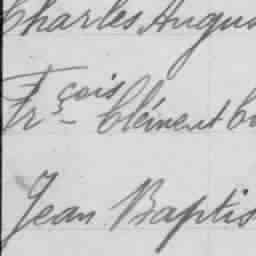 Charles Augus
Fr çois Clément
Jean Baptis